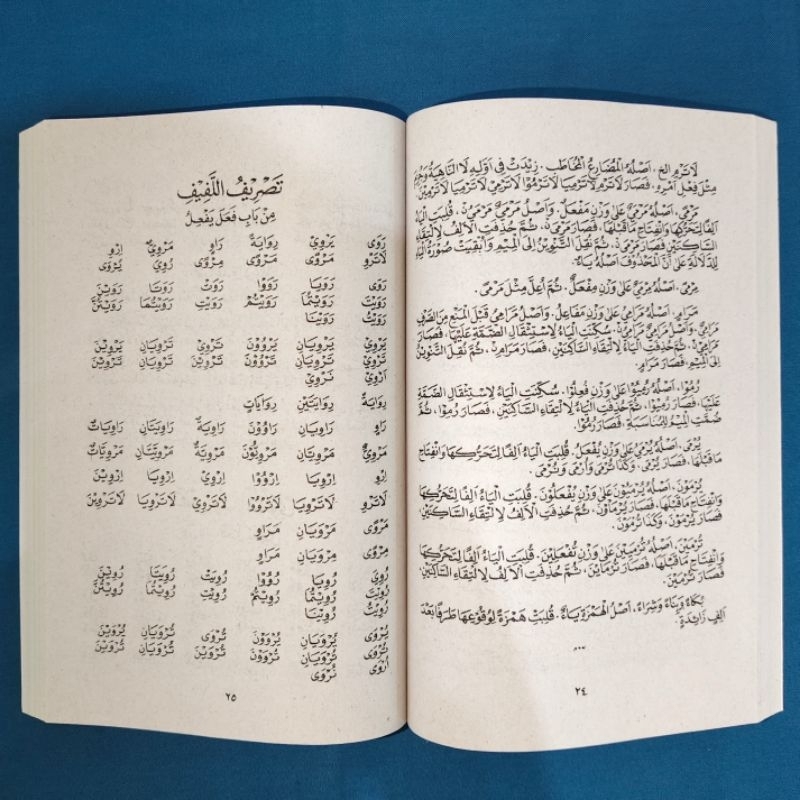 لَاتَرْمِ الخ، اَصْلُهُ الْمُضَارِعُ الْمُخَاطَب. زِيْدَتْ فِى اَوَّلِهِ لَا النَّاهِيَةُ وَجُزِمَ
مِثْلَ فِعْلِ اَمْرِهِ، فَصَارَ لَاتَرْمِ لَاتَرْمِيَا لَاتَرْمُوْا لَاتَرْمِيْ لَاتَرْمِيَا لَاتَرْمِيْنَ.
مَرْمًى، اَصْلُهُ مَرْمَيٌ عَلَى وَزْنِ مَفْعَلٌ. وَاَصْلُ مَرْمَيٌ مَرْمَيُنْ، قُلِبَتِ الْيَاءُ
اَلِفًا لِتَحَرُّكِهَا وَانْفِتَاحِ مَاقَبْلَهَا، فَصَارَ مَرْمَىنْ، ثُمَّ حُذِفَتِ الْاَلِفُ لِالْتِقَاءِ
السَّاكِنَيْنِ، فَصَارَ مَرْمَنْ، ثُمَّ نُقِلَ التَّنْوِيْنُ اِلَى الْمِيْمِ وَاُبْقِيَتْ صُوْرَةُ الْيَاءِ
لِلدَّلَالَةِ عَلَى اَنَّ الْمَحْذُوْفَ اَصْلُهُ يَاءٌ.
مِرْمًى، اَصْلُهُ مِرْمَيٌ عَلَى وَزْنِ مِفْعَلٌ. ثُمَّ اُعِلَّ مِثْلَ مَرْمًى.
مَرَامٍ، اَصْلُهُ مَرَامِيُ عَلَى وَزْنِ مَفَاعِلُ. وَاَصْلُ مَرَامِيُ قَبْلَ الْمَنْعِ مِنَ الصَّرْفِ
مَرَامِيٌ. وَاَصْلُ مَرَامِيٌ مَرَامِيُنْ. سُكِّنَتِ الْيَاءُ لِاسْتِثْقَالِ الضَّمَّةِ عَلَيْهَا، فَصَارَ
مَرَامِيْنْ، ثُمَّ حُذِفَتِ الْيَاءُ لِالْتِقَاءِ السَّاكِنَيْنِ، فَصَارَ مَرَامِنْ، ثُمَّ نُقِلَ التَّنْوِيْنُ
اِلَى الْمِيْمِ، فَصَارَ مَرَامٍ.
رُمُوْا، اَصْلُهُ رُمِيُوْا عَلَى وَزْنِ فُعِلُوْا. سُكِّنَتِ الْيَاءُ لِاسْتِثْقَالِ الضَّمَّةِ
عَلَيْهَا، فَصَارَ رُمِيْوْا، ثُمَّ حُذِفَتِ الْيَاءُ لِالْتِقَاءِ السَّاكِنَيْنِ، فَصَارَ رُمِوْا، ثُمَّ
ضُمَّتِ الْمِيْمُ لِمُنَاسَبَةٍ، فَصَارَ رُمُوْا.
يُرْمَى، اَصْلُهُ يُرْمَيُ عَلَى وَزْنِ يُفْعَلُ. قُلِبَتِ الْيَاءُ اَلِفًا لِتَحَرُّكِهَا وَانْفِتَاحِ
مَاقَبْلَهَا، فَصَارَ يُرْمَى، وَكَذَا تُرْمَى وَاُرْمَى وَنُرْمَى.
يُرْمَوْنَ، اَصْلُهُ يُرْمَيُوْنَ عَلَى وَزْنِ يُفْعَلُوْنَ. قُلِبَتِ الْيَاءُ اَلِفًا لِتَحَرُّكِهَا
وَانْفِتَاحِ مَاقَبْلَهَا، فَصَارَ يُرْمَاوْنَ، ثُمَّ حُذِفَتِ الْاَلِفُ لِالْتِقَاءِ السَّاكِنَيْنِ،
فَصَارَ يُرْمَوْنَ، وَكَذَا تُرْمَوْنَ.
تُرْمَيْنَ، اَصْلُهُ تُرْمَيِيْنَ عَلَى وَزْنِ تُفْعَلِيْنَ. قُلِبَتِ الْيَاءُ اَلِفًا لِتَحَرُّكِهَا
وَانْفِتَاحِ مَاقَبْلَهَا، فَصَارَ تُرْمَايْنَ، ثُمَّ حُذِفَتِ الْاَلِفُ لِالْتِقَاءِ السَّاكِنَيْنِ،
فَصَارَ تُرْمَيْنَ.
بُكَاءٌ وَبِنَاءٌ وَشِرَاءٌ، اَصْلُ الْهَمْزَةِ يَاءٌ. قُلِبَتْ هَمْزَةً لِوُقُوْعِهَا طَرَفًا بَعْدَ
اَلِفٍ زَائِدَةٍ.
٢٤
تَصْرِيْفُ اللَّفِيْفِ
مِنْ بَابِ فَعَلَ يَفْعِلُ
رَوَى يَرْوِيْ رِوَايَةً رَاوٍ مَرْوِيٌّ اِرْوِ
لَاتَرْوِ مَرْوًى مَرْوًى مِرْوًى رُوِيَ يُرْوَى
رَوَى رَوَيَا رَوَوْا رَوَتْ رَوَتَا رَوَيْنَ
رَوَيْتَ رَوَيْتُمَا رَوَيْتُمْ رَوَيْتِ رَوَيْتُمَا رَوَيْتُنَّ
رَوَيْتُ رَوَيْنَا
يَرْوِيْ يَرْوِيَانِ يَرْوُوْنَ تَرْوِيْ تَرْوِيَانِ يَرْوِيْنَ
تَرْوِيْ تَرْوِيَانِ تَرْوُوْنَ تَرْوِيْنَ تَرْوِيَانِ تَرْوِيْنَ
اَرْوِيْ نَرْوِيْ
رِوَايَةً رِوَايَتَيْنِ رِوَايَاتٍ
رَاوٍ رَاوِيَانِ رَاوُوْنَ رَاوِيَةٌ رَاوِيَتَانِ رَاوِيَاتٌ
مَرْوِيٌّ مَرْوِيَّانِ مَرْوِيُّوْنَ مَرْوِيَّةٌ مَرْوِيَّتَانِ مَرْوِيَّاتٌ
اِرْوِ اِرْوِيَا اِرْوُوْا اِرْوِيْ اِرْوِيَا اِرْوِيْنَ
لَاتَرْوِ لَاتَرْوِيَا لَاتَرْوُوْا لَاتَرْوِيْ لَاتَرْوِيَا لَاتَرْوِيْنَ
مَرْوًى مَرْوَيَانِ مَرَاوٍ
مِرْوًى مِرْوَيَانِ مَرَاوٍ
رُوِيَ رُوِيَا رُوُوْا رُوِيَتْ رُوِيَتَا رُوِيْنَ
رُوِيْتَ رُوِيْتُمَا رُوِيْتُمْ رُوِيْتِ رُوِيْتُمَا رُوِيْتُنَّ
رُوِيْتُ رُوِيْنَا
يُرْوَى يُرْوَيَانِ يُرْوَوْنَ تُرْوَى تُرْوَيَانِ يُرْوَيْنَ
تُرْوَى تُرْوَيَانِ تُرْوَوْنَ تُرْوَيْنَ تُرْوَيَانِ تُرْوَيْنَ
اُرْوَى نُرْوَى
٢٥